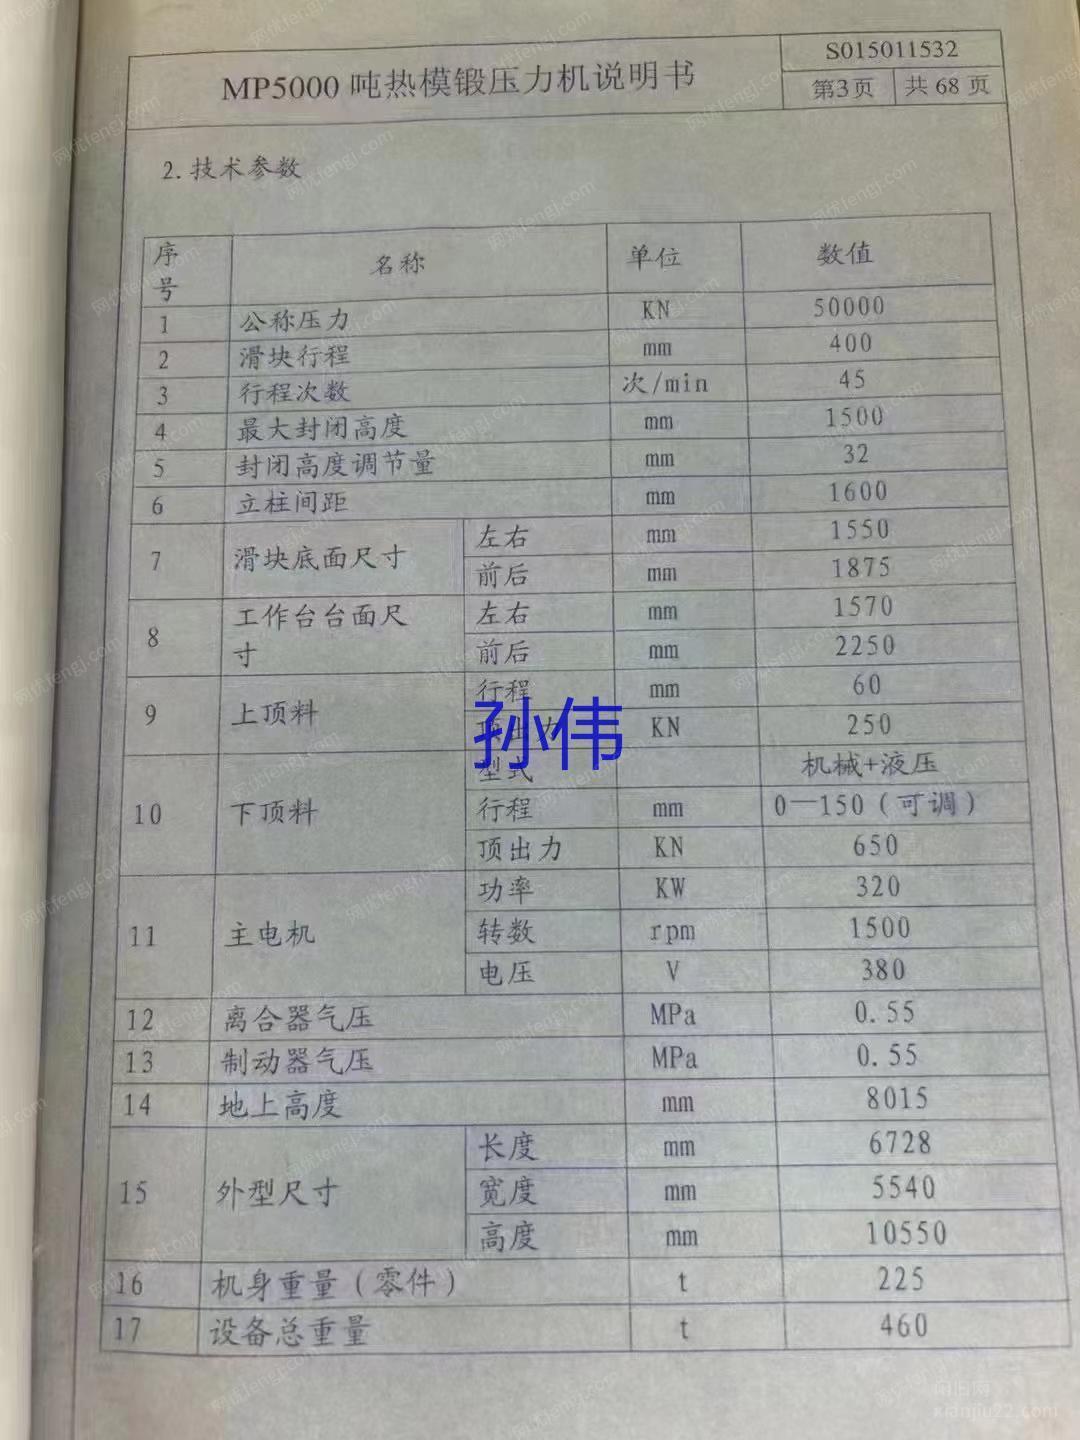 MP5000 吨热模锻压力机说明书
S015011532
第3页 共 68 页
2.技术参数
序号 名称 单位 数值
1 公称压力 KN 50000
2 滑块行程 mm 400
3 行程次数 次/min 45
4 最大封闭高度 mm 1500
5 封闭高度调节量 mm 32
6 立柱间距 mm 1600
7 滑块底面尺寸 左右 mm 1550
前后 mm 1875
8 工作台台面尺寸 左右 mm 1570
前后 mm 2250
9 上顶料 行程 mm 60
顶出力 KN 250
孙伟
10 下顶料 型式 机械+液压
行程 mm 0—150（可调）
顶出力 KN 650
11 主电机 功率 KW 320
转数 rpm 1500
电压 V 380
12 离合器气压 MPa 0.55
13 制动器气压 MPa 0.55
14 地上高度 mm 8015
15 外型尺寸 长度 mm 6728
宽度 mm 5540
高度 mm 10550
16 机身重量（零件） t 225
17 设备总重量 t 460
闲旧网
xianjiu22.com
网优fengj.com